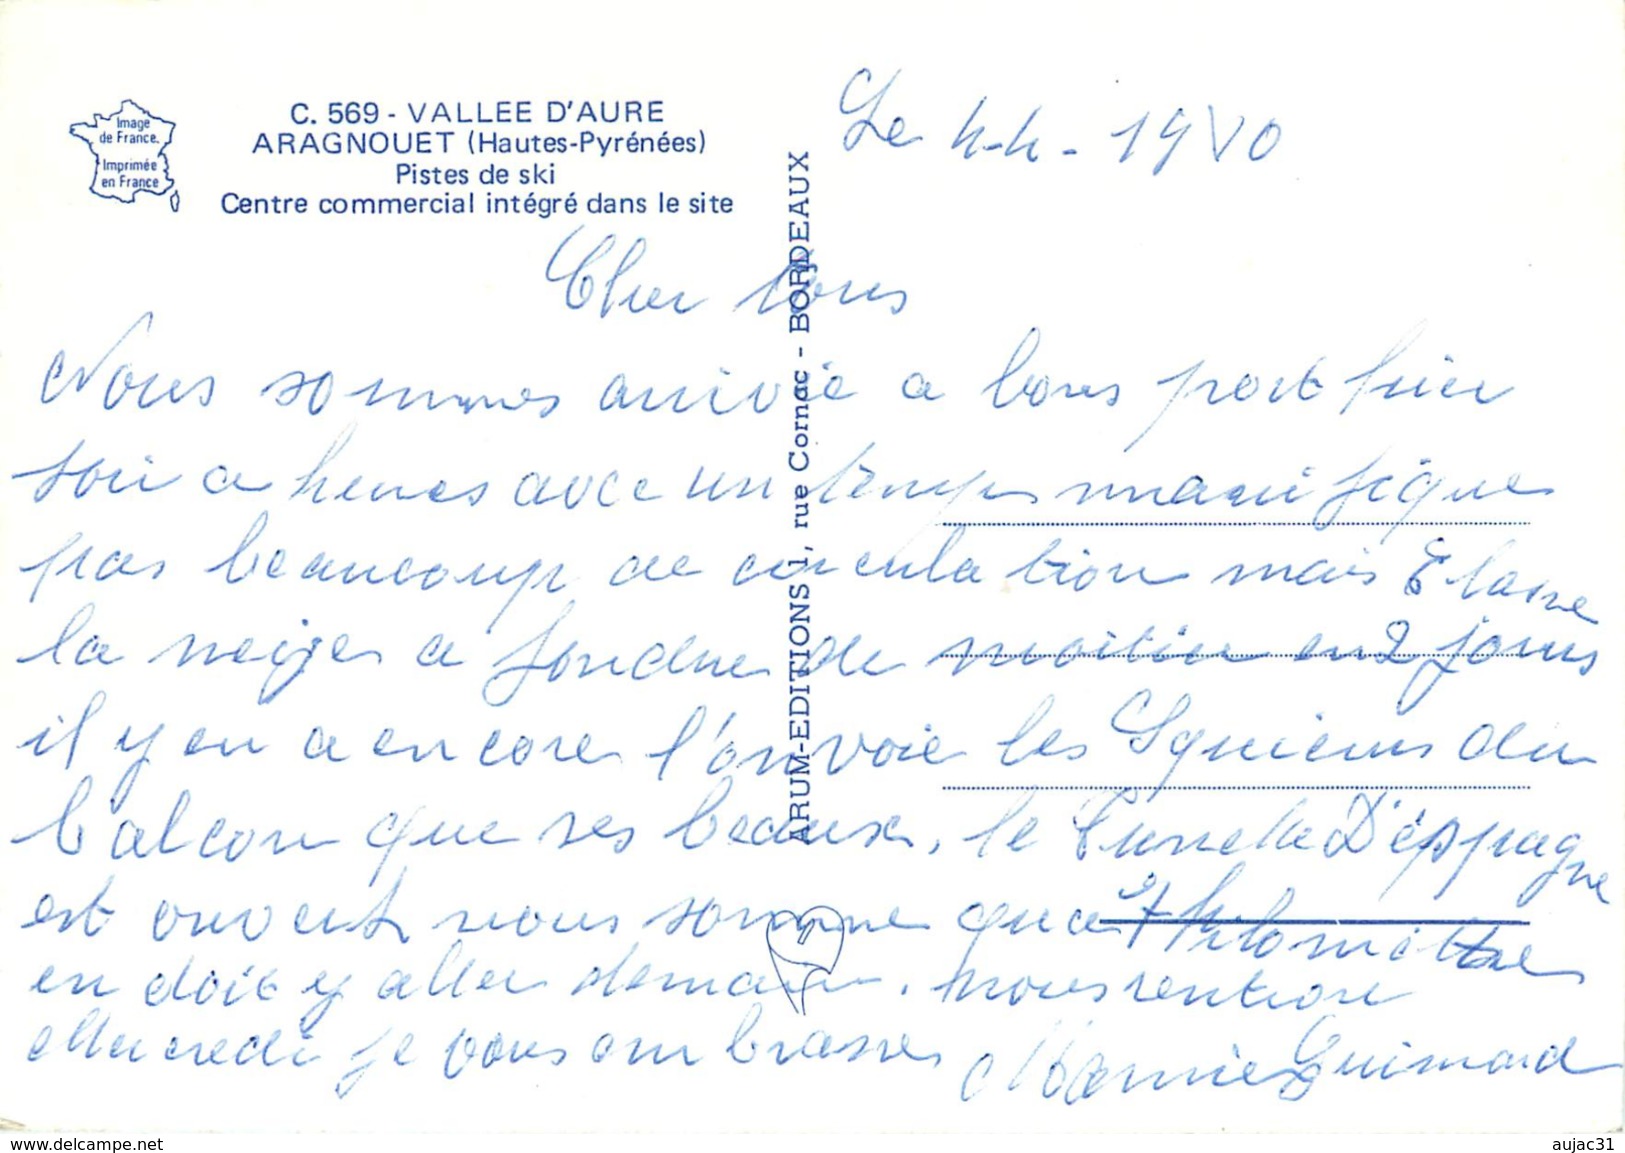 Image
de France.
Imprimée
en France
C. 569 - VALLEE D'AURE
ARAGNOUET (Hautes-Pyrénées)
Pistes de ski
Centre commercial intégré dans le site
ARUM-EDITIONS 1, rue Cornac - BORDEAUX
Le 4-4-1980
Cher tous
Nous sommes arrivie a bons port hier
soir a heures avec un temps manifique
pas beaucoup de circulation mais
la neige a fondue de moitier en 2 jours
il y en a encore l'on voie les Squieurs du
balcon que ses beaux, le Tunele D'éspagne
est ouvert nous somme que a 7 kilomettre
en doit y aller demain. nous rentrons
Mercredi je vous embrasses Mamie Guimard
www.delcampe.net
aujac31